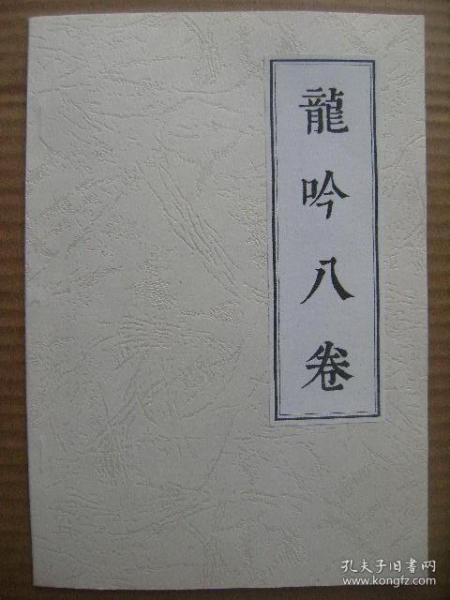 龍吟八卷
孔夫子旧書网
www.kongfz.com